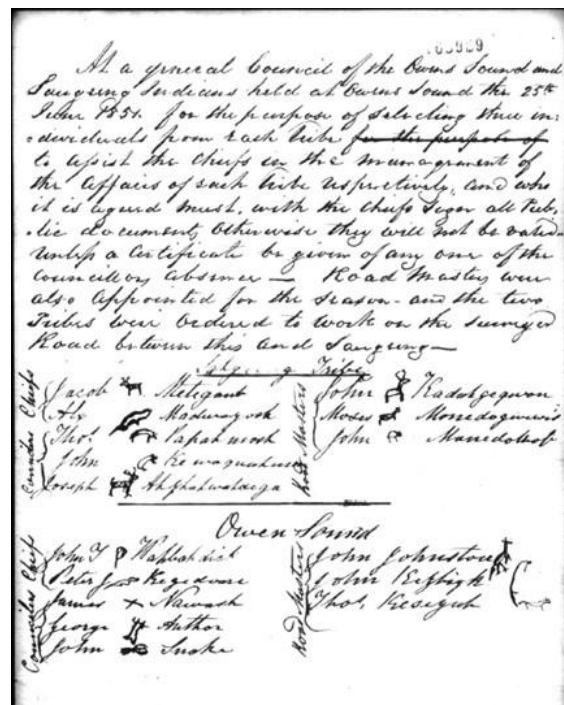 At a general Council of the Owens Sound and
Saugeeng Indians held at Owens Sound the 25th
June 1851. for the purpose of selecting three in=
=dividuals from each tribe for the purpose of
to assist the Chiefs in the management of
the Affairs of each tribe respectively, and who
it is agreed must, with the Chiefs sign all Pub,
lic documents, otherwise they will not be valid
unless a Certificate be given of any one of the
Councillors absence — Road Masters were
also appointed for the season - and the two
Tribes were ordered to work on the surveyed
Road between this and Saugeeng —
Tribe
Chiefs
Jacob Metigant
Alx Madwayosh
Thos.
John
Joseph
Road Masters
John
Moses
John
Owen Sound
Chiefs
John T Wahbahdick
Peter J Kegedonce
James Nawash
George Author
John Snake
Road Masters
John Johnston
John
Thos.